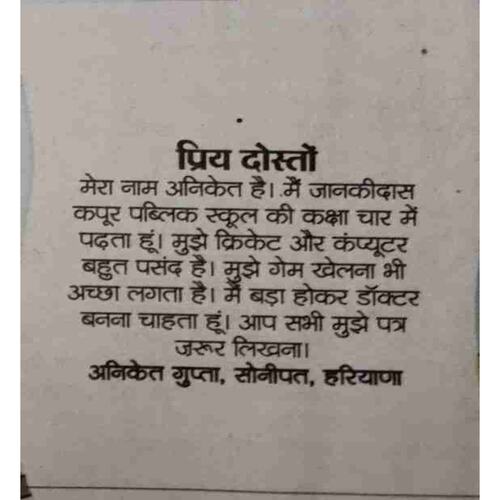 प्रिय दोस्तों
मेरा नाम अनिकेत है। मैं जानकीदास
कपूर पब्लिक स्कूल की कक्षा चार में
पढ़ता हूं। मुझे क्रिकेट और कंप्यूटर
बहुत पसंद है। मुझे गेम खेलना भी
अच्छा लगता है। मैं बड़ा होकर डॉक्टर
बनना चाहता हूं। आप सभी मुझे पत्र
जरूर लिखना।
अनिकेत गुप्ता, सोनीपत, हरियाणा